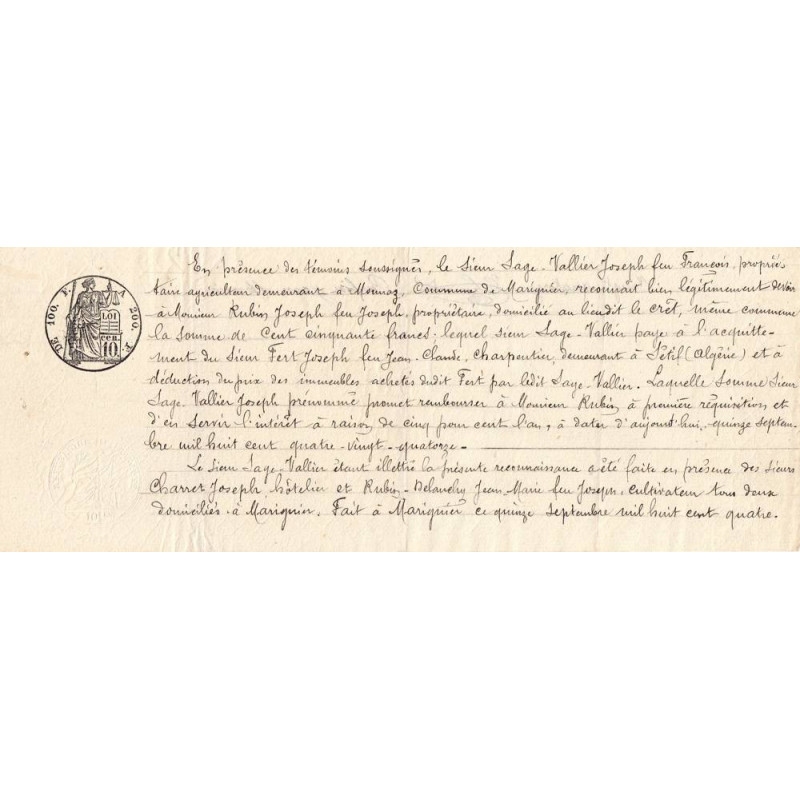 DE 100. F. A 200. F.
LOI
CEN.
10
En présence des témoins soussignés, le Sieur Sage-Vallier Joseph feu François, proprié
taire agriculteur demeurant à Monnaz, Commune de Marignier, reconnait bien légitimement devoir
à Monsieur Rubin Joseph feu Joseph, propriétaire, domicilié au lieudit le crêt, même commune
la somme de Cent cinquante francs. lequel sieur Sage-Vallier paye à l'acquitte-
ment du Sieur Fert Joseph feu Jean-Claude, charpentier, demeurant à Sétif (Algérie) et à
déduction du prix des immeubles achetés dudit Fert par ledit Sage-Vallier. Laquelle somme Sieur
Sage-Vallier Joseph prénommé promet rembourser à Monsieur Rubin, à première réquisition et
d'en servir l'intérêt à raison de cinq pour cent l'an, à dater d'aujourd'hui, quinze septem-
bre mil huit cent quatre-vingt-quatorze-
Le Sieur Sage-Vallier étant illettré la présente reconnaissance a été faite en présence des Sieurs
Charret Joseph hôtelier et Rubin- Jean-Marie feu Joseph, cultivateur tous deux
domiciliés à Marignier. Fait à Marignier ce quinze septembre mil huit cent quatre-